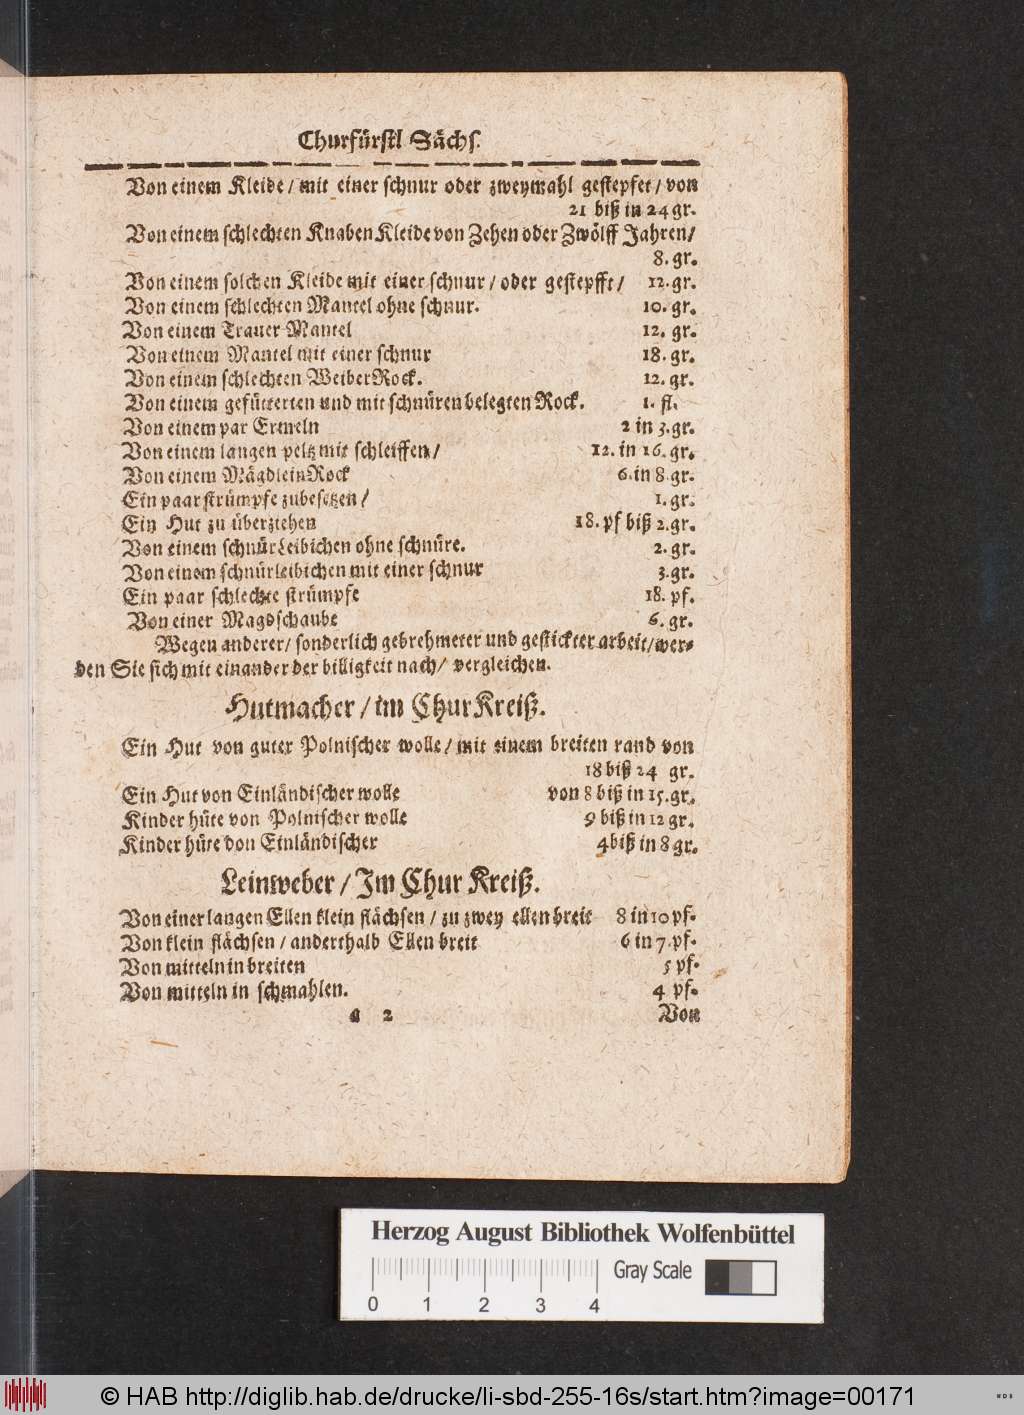 Churfürstl Sächs.
Von einem Kleide / mit einer schnur oder zweymahl gestepfet / von
21 biß in 24 gr.
Von einem schlechten Knaben Kleide von Zehen oder Zwölff Jahren /
8. gr.
Von einem solchen Kleide mit einer schnur / oder gestepfft / 12. gr.
Von einem schlechten Mantel ohne schnur. 10. gr.
Von einem Trauer Mantel 12. gr.
Von einem Mantel mit einer schnur 18. gr.
Von einem schlechten WeiberRock. 12. gr.
Von einem gefütterten und mit schnüren belegten Rock. 1. fl.
Von einem par Ermeln 2 in 3. gr.
Von einem langen peltz mit schleiffen / 12. in 16. gr.
Von einem MägdleinRock 6. in 8. gr.
Ein paar strümpfe zubesetzen / 1. gr.
Ein Hut zu überziehen 18. pf biß 2. gr.
Von einem schnürLeibichen ohne schnüre. 2. gr.
Von einem schnürleibichen mit einer schnur 3. gr.
Ein paar schlechte strümpfe 18. pf.
Von einer Magdschaube 6. gr.
Wegen anderer / sonderlich gebrehmeter und gestickter arbeit / wer-
den Sie sich mit einander der billigkeit nach / vergleichen.
Hutmacher / im Chur Kreiß.
Ein Hut von guter Polnischer wolle / mit einem breiten rand von
18 biß 24 gr.
Ein Hut von Einländischer wolle von 8 biß in 15. gr.
Kinder hüte von Polnischer wolle 9 biß in 12 gr.
Kinder hüte von Einländischer 4 biß in 8 gr.
Leinweber / Im Chur Kreiß.
Von einer langen Ellen klein flächsen / zu zwey ellen breit 8 in 10 pf.
Von klein flächsen / anderthalb Ellen breit 6 in 7. pf.
Von mitteln in breiten 5 pf.
Von mitteln in schmahlen. 4 pf.
a 2 Von
Herzog August Bibliothek Wolfenbüttel
Gray Scale
0 1 2 3 4
© HAB http://diglib.hab.de/drucke/li-sbd-255-16s/start.htm?image=00171
WDB